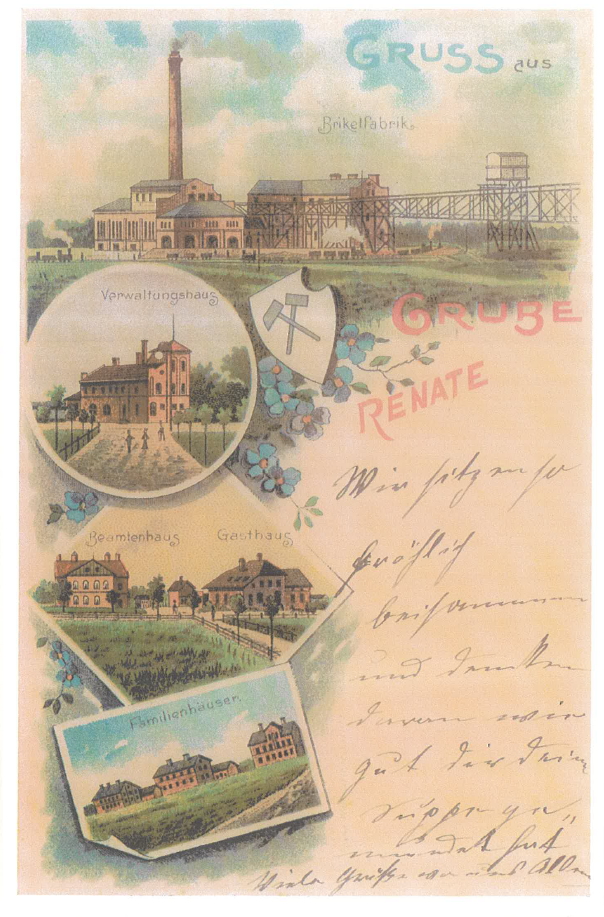 GRUSS aus
Brikettfabrik.
GRUBE
RENATE
Verwaltungshaus
Beamtenhaus Gasthaus
Familienhäuser.
Wir sitzen so
fröhlich
beisammen
und denken
daran wie
gut dir deine
Suppe ge„
mundet hat
Viele Grüße von uns Allen